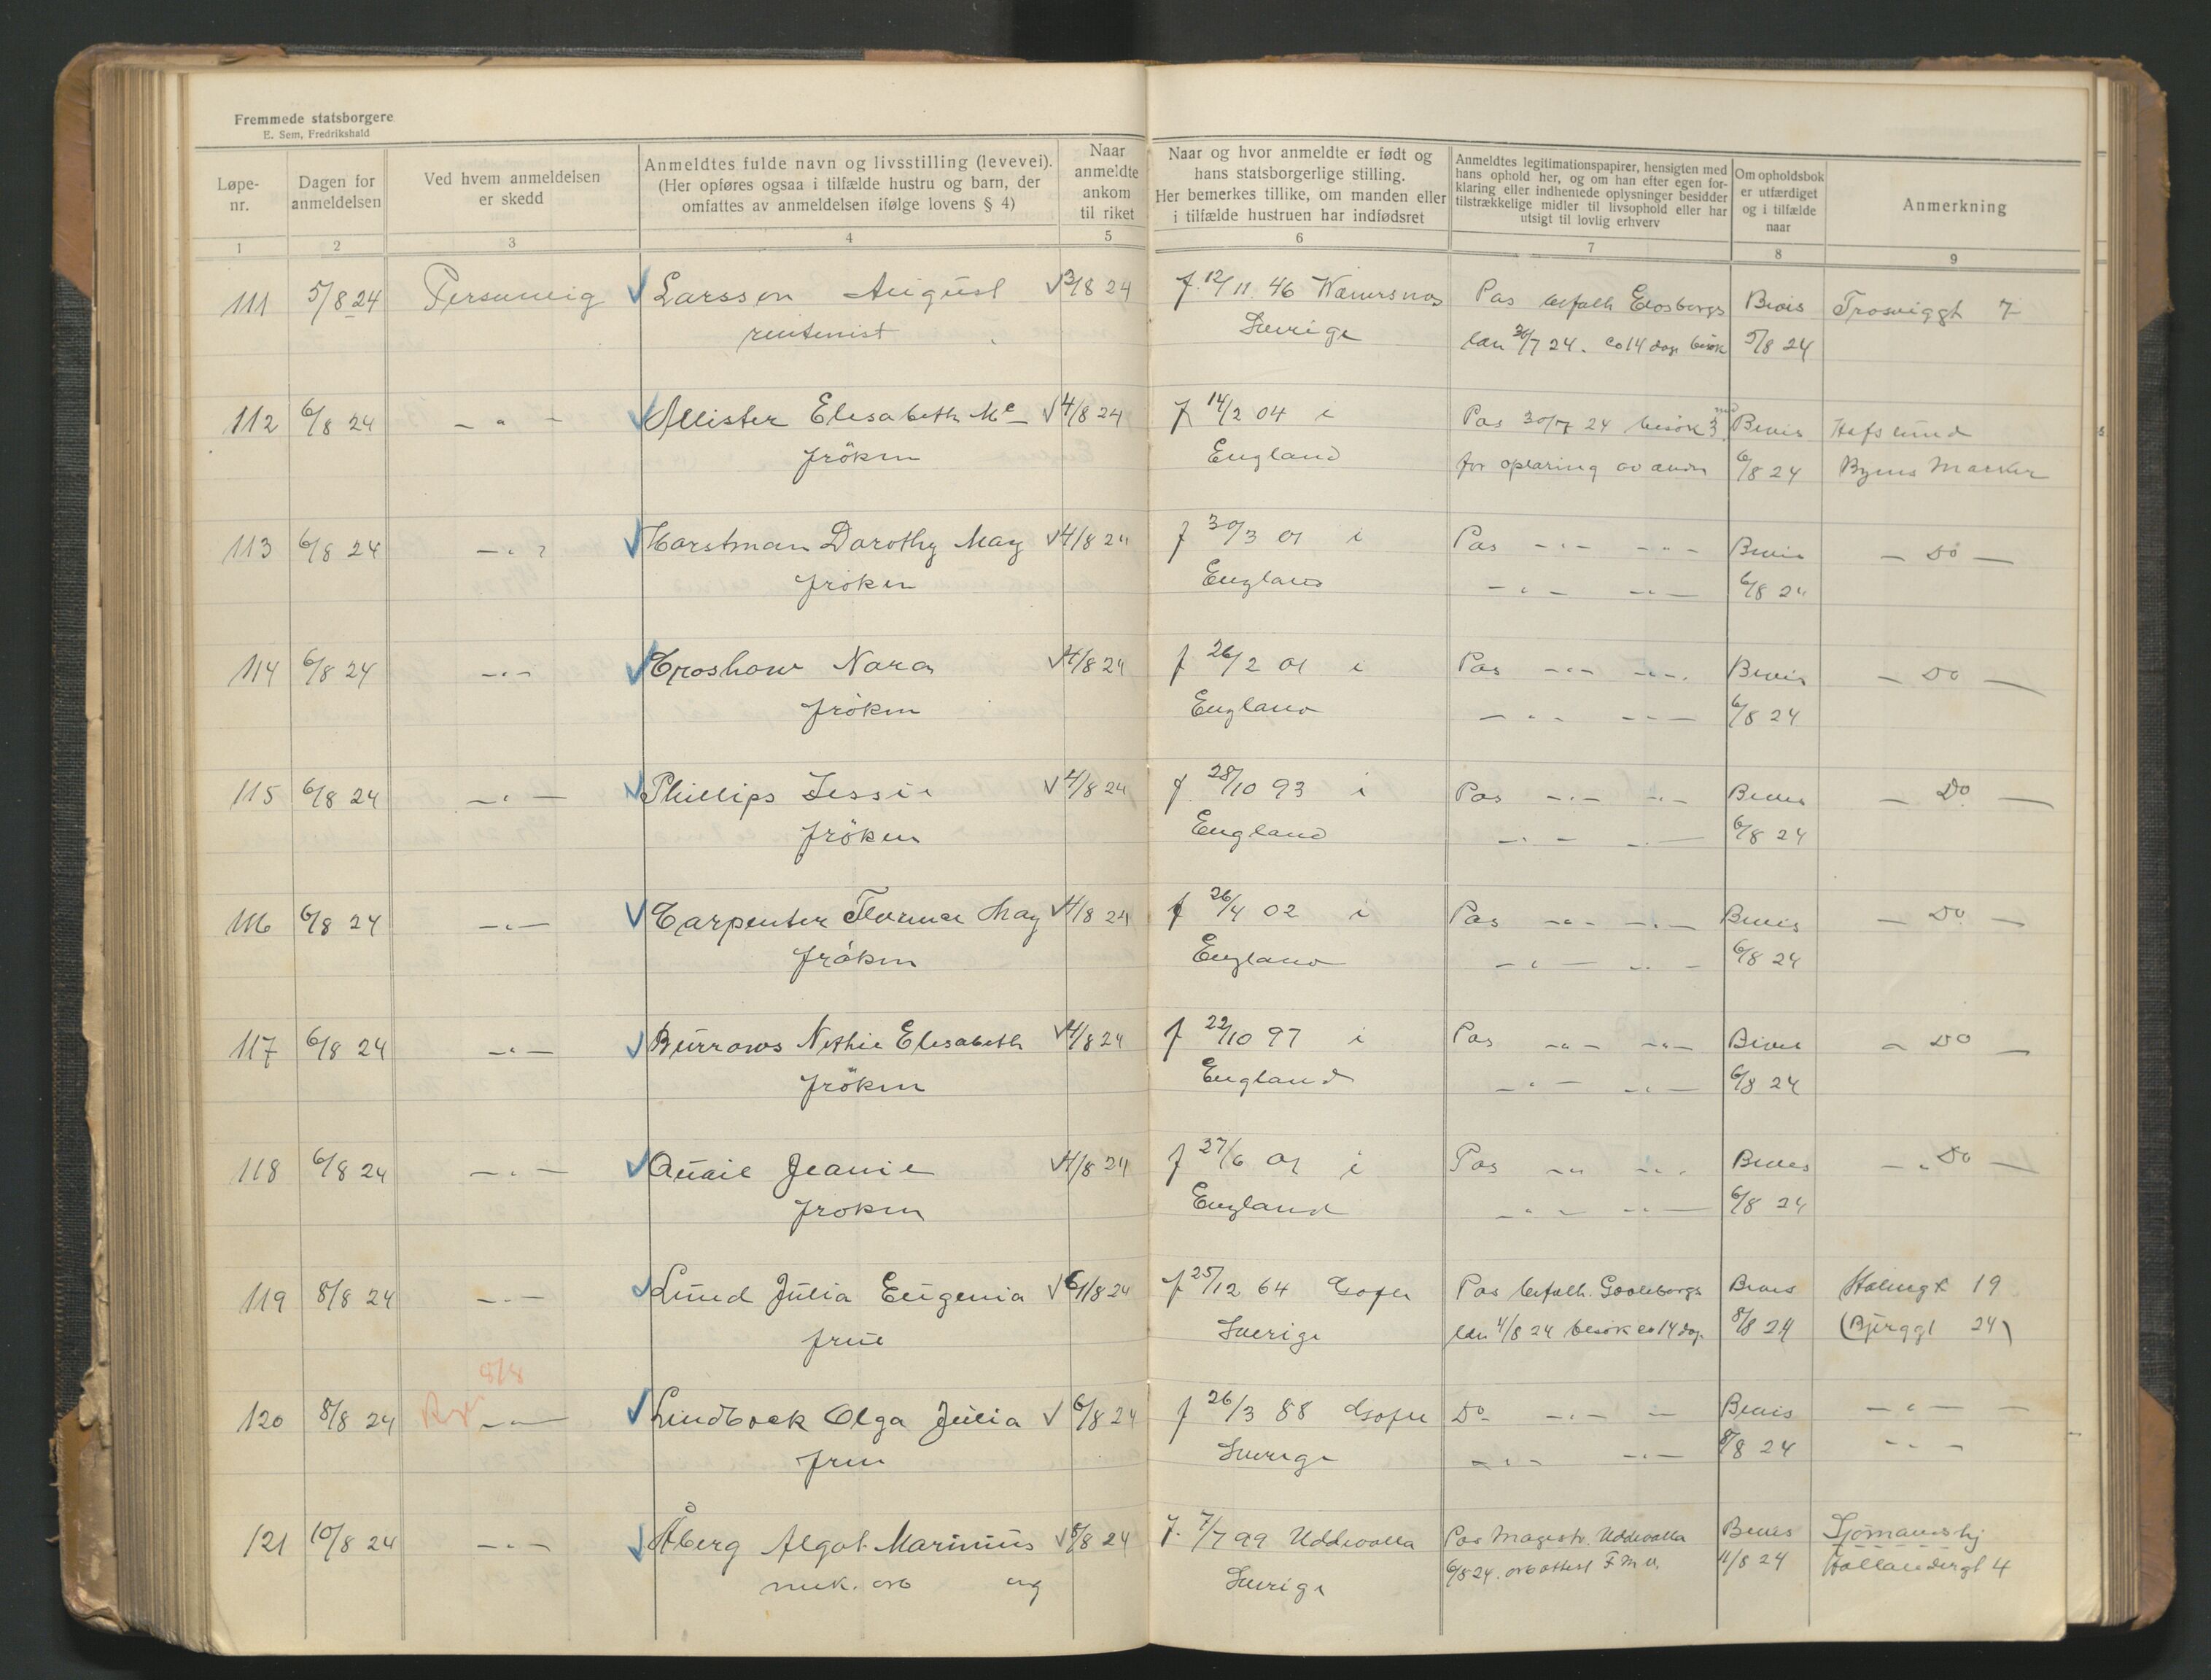 Fremmede statsborgere
E. Sem, Fredrikshald
Løpe-nr.
Dagen for anmeldelsen
Ved hvem anmeldelsen er skedd
Anmeldtes fulde navn og livsstilling (levevei).
(Her opføres ogsaa i tilfælde hustru og barn, der
omfattes av anmeldelsen ifølge lovens § 4)
Naar anmeldte ankom til riket
Naar og hvor anmeldte er født og
hans statsborgerlige stilling.
Her bemerkes tillike, om manden eller
i tilfælde hustruen har indfødsret
Anmeldtes legitimationspapirer, hensigten med
hans ophold her, og om han efter egen for-
klaring eller indhentede oplysninger besidder
tilstrækkelige midler til livsophold eller har
utsigt til lovlig erhverv
Om opholdsbok
er utfærdiget
og i tilfælde
naar
Anmerkning
1 2 3 4 5 6 7 8 9
111 5/8 24 Personlig Larsson August 3/8 24 f. 12/11 46 Wänersnäs Pas Bevis Trosviggt 7
rentenist Sverige län 30/7 24. ca 14 dag besøk 5/8 24
112 6/8 24 - " - Allister Elisabeth Mc 4/8 24 f 14/2 04 i Pas 30/7 24 besøk 3 Bevis Hafslund
fröken England for oplæring av andre 6/8 24 Byens Marker
113 6/8 24 - " - Horstman Dorothy May 4/8 24 f 30/3 01 i Pas - " - - " - Bevis - Do -
fröken England - " - - " - 6/8 24
114 6/8 24 - " - Croshow Nora 4/8 24 f 26/2 01 i Pas - " - - " - Bevis - Do -
fröken England - " - - " - 6/8 24
115 6/8 24 - " - Phillips Jessie 4/8 24 f 28/10 93 i Pas - " - - " - Bevis - Do -
fröken England - " - - " - 6/8 24
116 6/8 24 - " - Carpenter Florence May 4/8 24 f 26/4 02 i Pas - " - - " - Bevis - Do -
fröken England - " - - " - 6/8 24
117 6/8 24 - " - Burrows Nethie Elisabeth 4/8 24 f 22/10 97 i Pas - " - - " - Bevis - Do -
fröken England - " - - " - 6/8 24
118 6/8 24 - " - Quaie Jeanie 4/8 24 f 27/6 01 i Pas - " - - " - Bevis - " Do -
fröken England - " - - " - 6/8 24
119 8/8 24 - " - Lund Julia Eugenia 6/8 24 f 25/12 64 Pas Bevis 19
frue Sverige län 4/8 24 besøk ca 14 dag. 8/8 24 (Bjerggt 24)
8/8
120 8/8 24 - " - Lindbock Olga Julia 6/8 24 f 26/3 88 Do - " - - Bevis - " -
frue Sverige - " - - " - 8/8 24 - " -
121 10/8 24 - " - Åberg Algot Marinius 8/8 24 f. 7/7 99 Uddevalla Pas Magistr. Uddevalla Bevis Sjömanshj
mek. arb ug Sverige 6/8 24. arb attest F.M.V. 11/8 24 Hollendergt 4